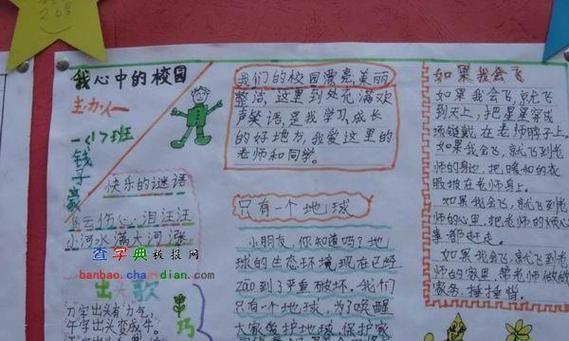 我心中的校园
主办人
一(1)班
钱子豪
快乐的谜语
乌云伤心泪汪汪
小河水满大河涨
查字典板报网
banbao.chazidian.com
出头歌
力字出头有力气
午字出头变成牛
巧
我们的校园漂亮美丽
整洁，这里到处充满欢
声笑语，是我学习，成长
的好地方，我爱这里的
老师和同学。
只有一个地球
小朋友，你知道吗？地
球的生态环境现在已经
遭到了严重破坏，我们
只有一个地球，为了唤醒
大家爱护地球，保护家
如果我会飞
如果我会飞，就飞
到天上，把星星穿成
项链戴在老师脖子上。
如果我会飞，就飞到老
师的身边，把暖和的衣
服披在老师身上。
如果我会飞，就飞到老
师的心里，把老师的烦心
事都赶走。
如果我会飞，就飞到老师
的家里，帮老师做做
家务，捶捶背。